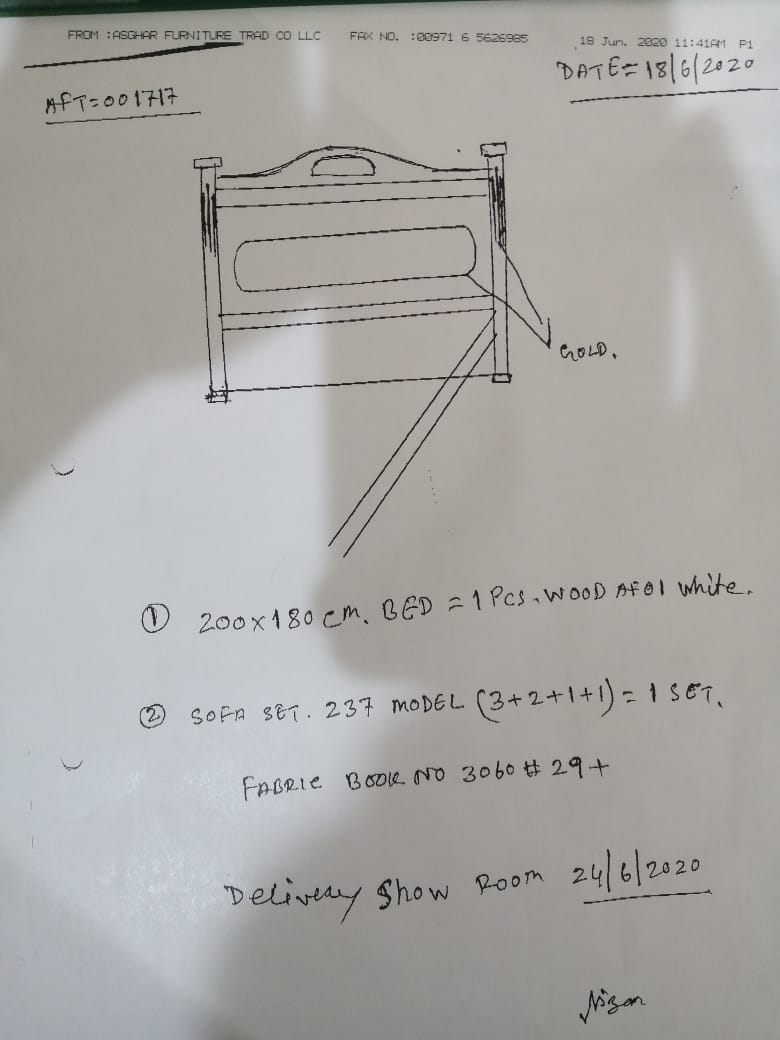 FROM :ASGHAR FURNITURE TRAD CO LLC FAX NO. :00971 6 5626985 18 Jun. 2020 11:41AM P1
DATE= 18/6/2020
AFT=001717
GOLD.
① 200x180 cm. BED = 1 Pcs. WOOD AF01 white.
② SOFA SET. 237 MODEL (3+2+1+1) = 1 SET.
FABRIC BOOK NO 3060 # 29+
Delivery Show Room 24/6/2020
Nizam